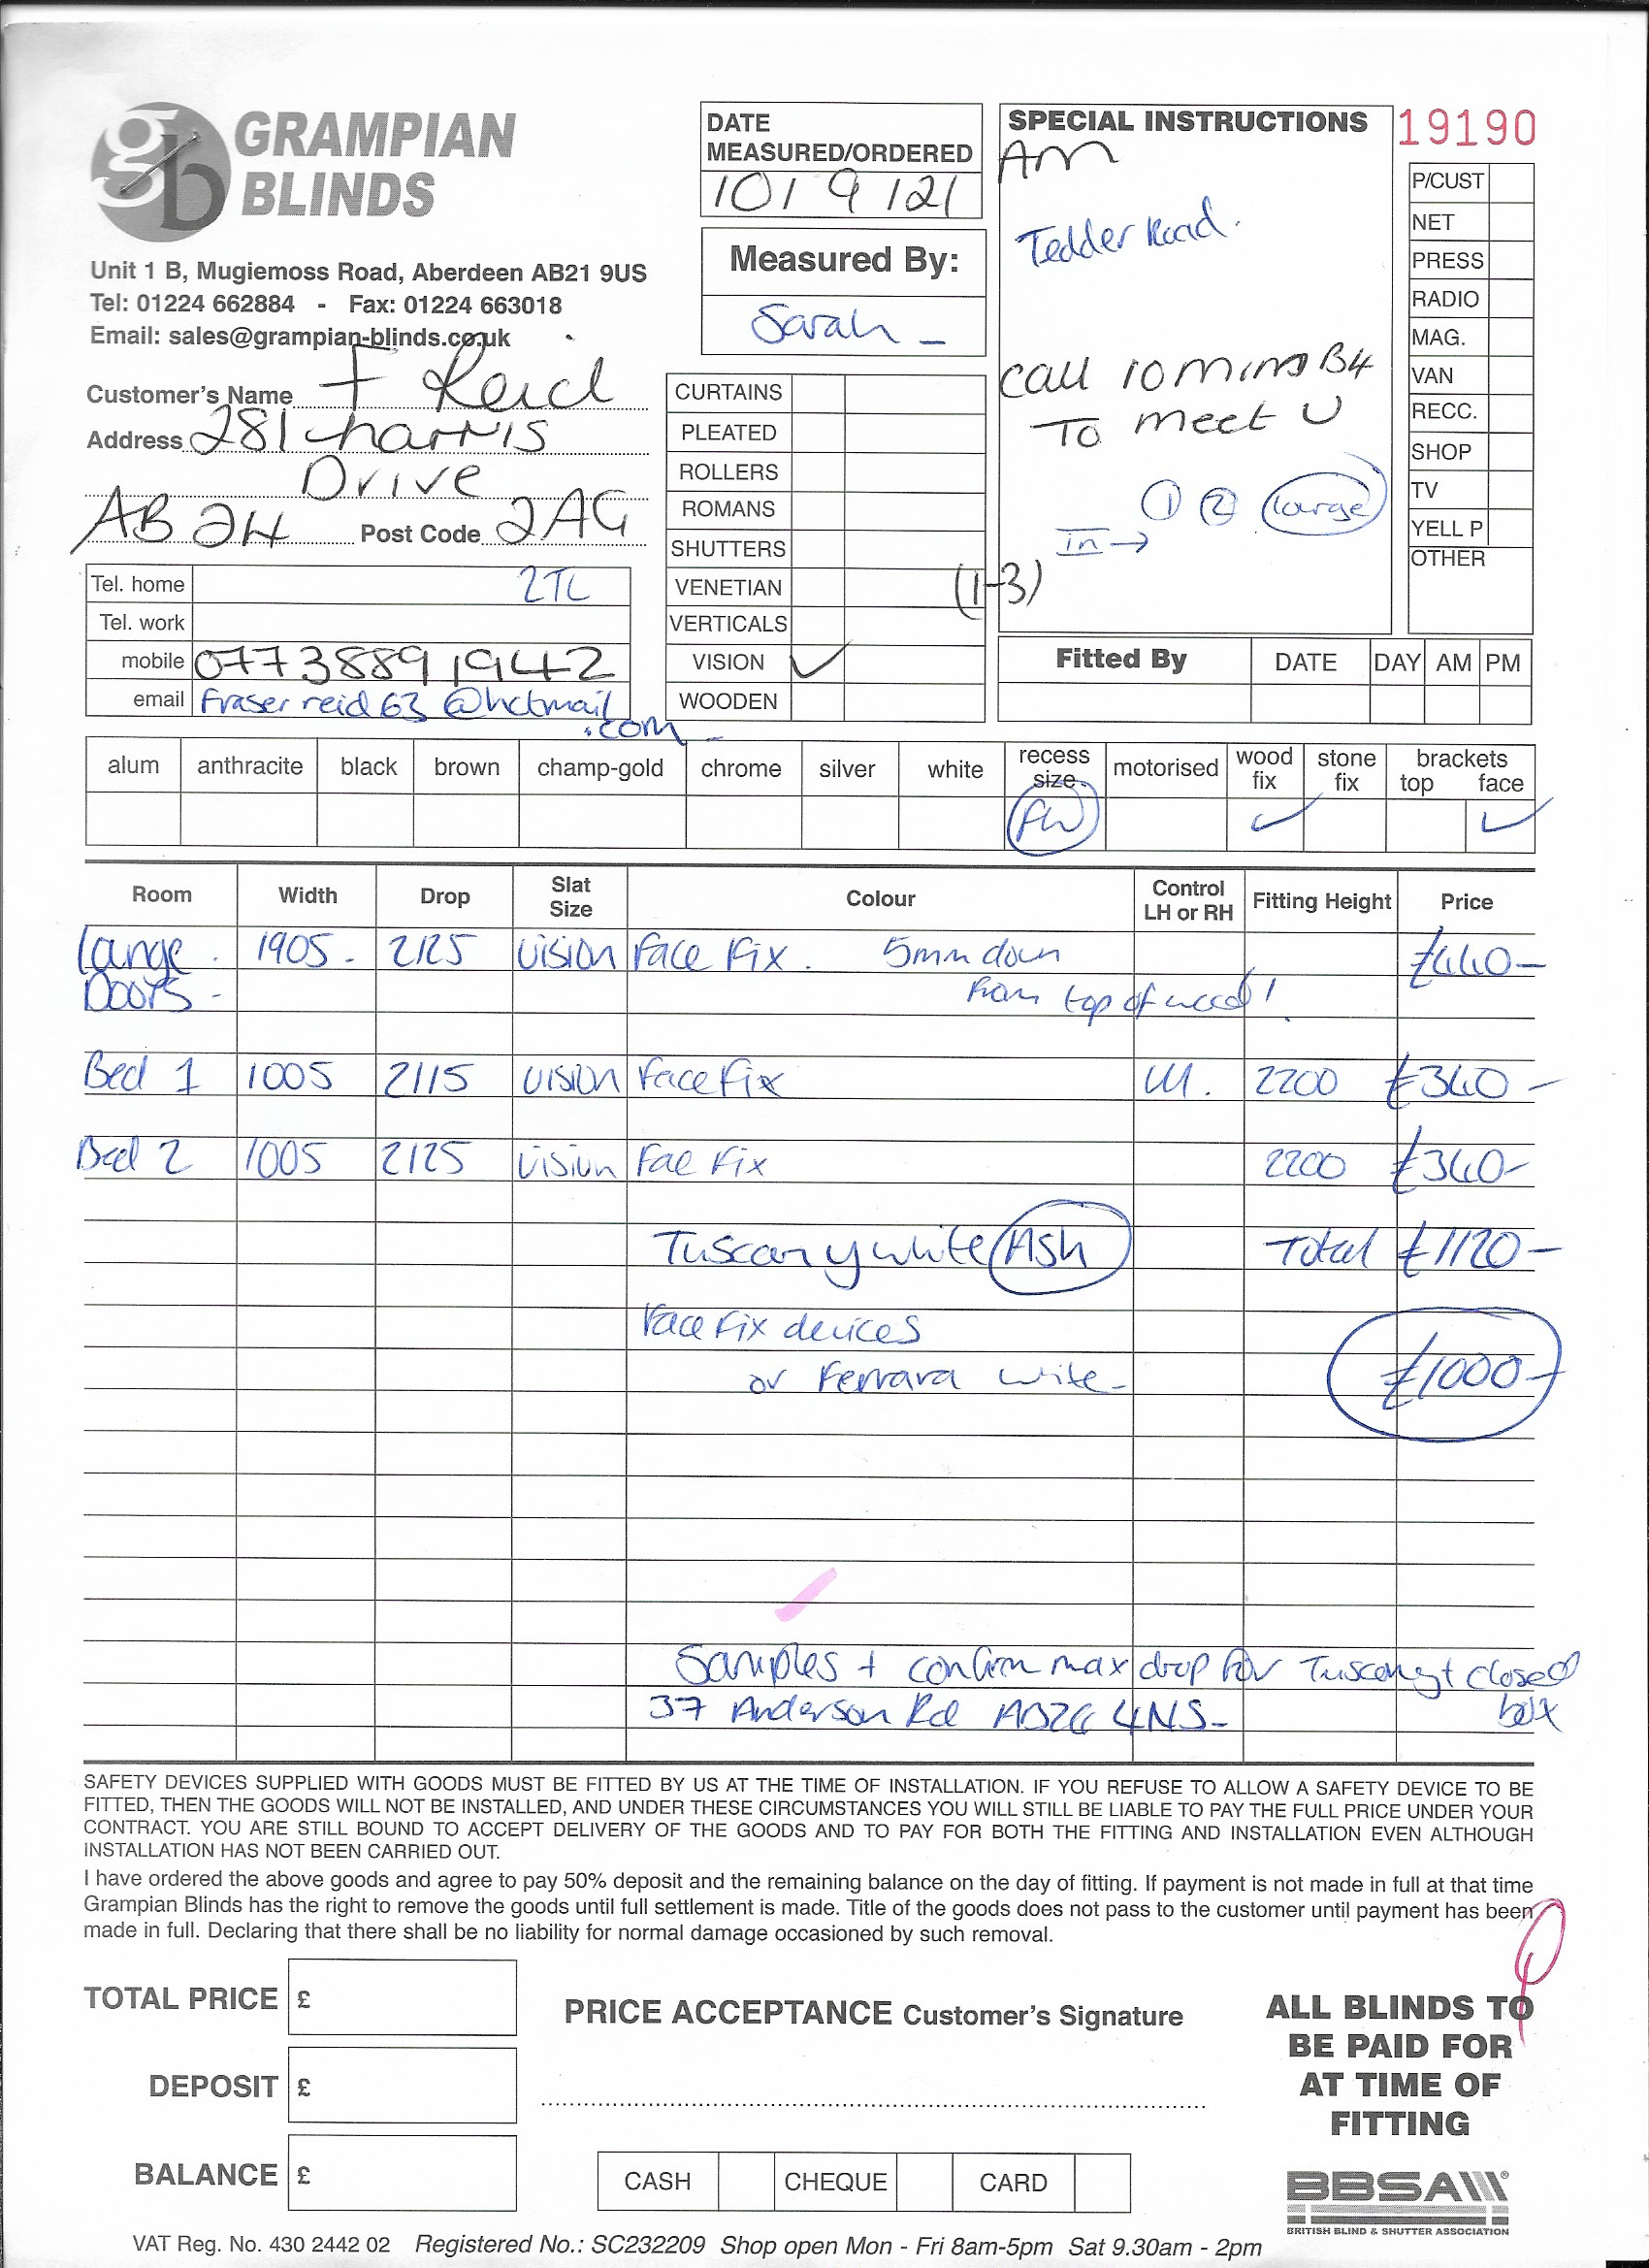 GRAMPIAN
BLINDS
Unit 1 B, Mugiemoss Road, Aberdeen AB21 9US
Tel: 01224 662884 - Fax: 01224 663018
Email: sales@grampian-blinds.co.uk
Customer's Name F Reid
Address 281 harris
Drive
AB24 Post Code 2AG
Tel. home 2TL
Tel. work
mobile 07738891942
email Fraserreid63@hotmail
.com
DATE
MEASURED/ORDERED
10/9/21
Measured By:
Sarah
CURTAINS
PLEATED
ROLLERS
ROMANS
SHUTTERS
VENETIAN
VERTICALS
VISION ✓
WOODEN
SPECIAL INSTRUCTIONS
Am
Tedder Road.
Call 10 mins B4
To meet U
1 2 lounge
In →
(1-3)
19190
P/CUST
NET
PRESS
RADIO
MAG.
VAN
RECC.
SHOP
TV
YELL P
OTHER
Fitted By DATE DAY AM PM
alum anthracite black brown champ-gold chrome silver white recess size motorised wood fix stone fix brackets top face
✓ ✓
Room Width Drop Slat Size Colour Control LH or RH Fitting Height Price
Lounge 1905 2125 vision Face Fix. 5mm down £440-
Doors - from top of wood!
Bed 1 1005 2115 vision Face Fix LH. 2200 £340-
Bed 2 1005 2125 vision Fae Fix 2200 £340-
Tuscany white Ash Total £1120-
Face Fix devices
or Ferrara white- £1000-
Samples + confirm max drop for Tuscany + closed
box
37 Anderson Rd AB26 4NS-
SAFETY DEVICES SUPPLIED WITH GOODS MUST BE FITTED BY US AT THE TIME OF INSTALLATION. IF YOU REFUSE TO ALLOW A SAFETY DEVICE TO BE
FITTED, THEN THE GOODS WILL NOT BE INSTALLED, AND UNDER THESE CIRCUMSTANCES YOU WILL STILL BE LIABLE TO PAY THE FULL PRICE UNDER YOUR
CONTRACT. YOU ARE STILL BOUND TO ACCEPT DELIVERY OF THE GOODS AND TO PAY FOR BOTH THE FITTING AND INSTALLATION EVEN ALTHOUGH
INSTALLATION HAS NOT BEEN CARRIED OUT.
I have ordered the above goods and agree to pay 50% deposit and the remaining balance on the day of fitting. If payment is not made in full at that time
Grampian Blinds has the right to remove the goods until full settlement is made. Title of the goods does not pass to the customer until payment has been
made in full. Declaring that there shall be no liability for normal damage occasioned by such removal.
TOTAL PRICE £
DEPOSIT £
BALANCE £
PRICE ACCEPTANCE Customer's Signature
CASH CHEQUE CARD
ALL BLINDS TO
BE PAID FOR
AT TIME OF
FITTING
BBSA
BRITISH BLIND & SHUTTER ASSOCIATION
VAT Reg. No. 430 2442 02 Registered No.: SC232209 Shop open Mon - Fri 8am-5pm Sat 9.30am - 2pm